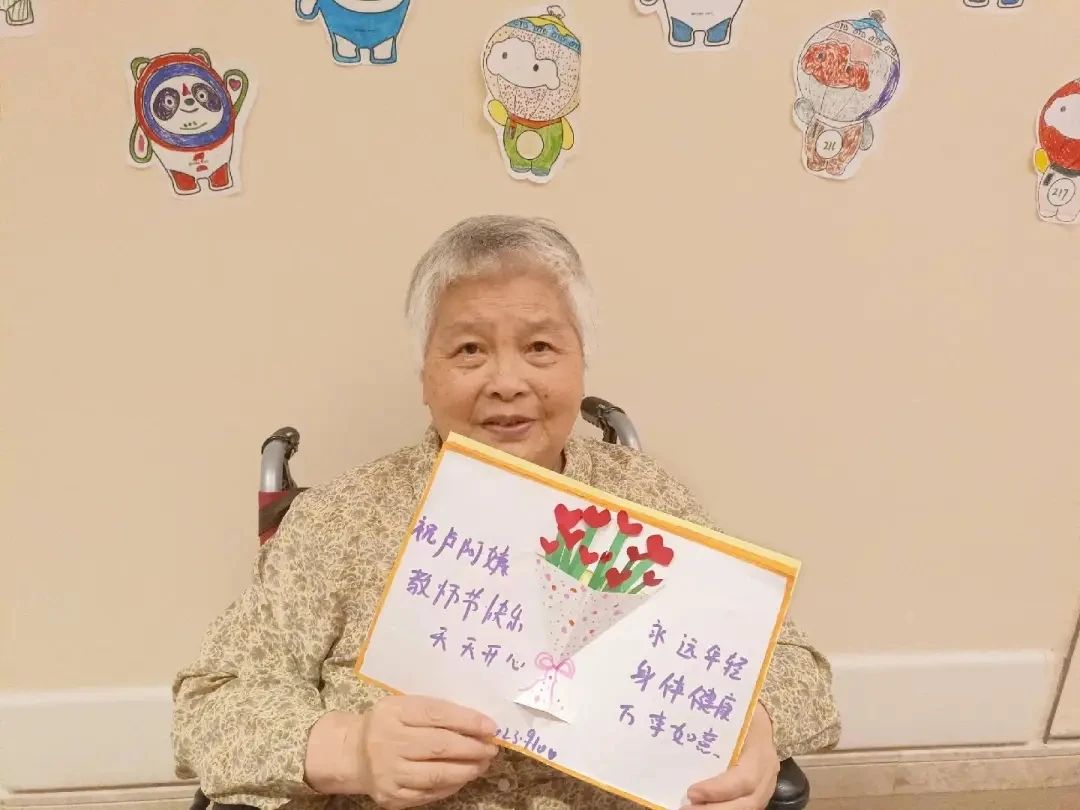 祝卢阿姨
教师节快乐
天天开心
永远年轻
身体健康
万事如意
023.9.10
216
217